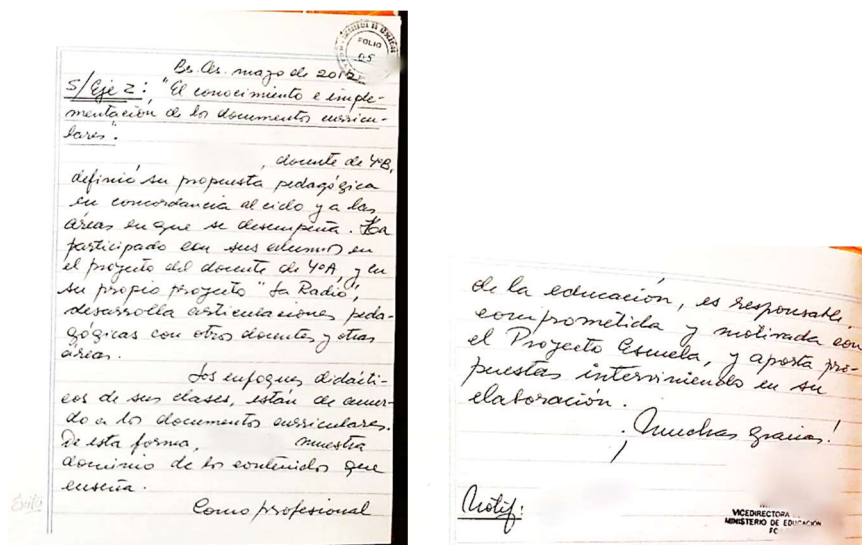 FOLIO
05
Bs. As. mayo de 2012
S/ Eje 2: "El conocimiento e imple-
mentación de los documentos curricu-
lares".
, docente de 4ºB,
definió su propuesta pedagógica
en concordancia al ciclo y a las
áreas en que se desempeña. Ha
participado con sus alumnos en
el proyecto del docente de 4ºA, y en
su propio proyecto "La Radio",
desarrolla articulaciones peda-
gógicas con otros docentes y otras
áreas.
Los enfoques didácti-
cos de sus clases, están de acuer-
do a los documentos curriculares.
De esta forma, muestra
dominio de los contenidos que
enseña.
Como profesional
Éxito
de la educación, es responsable,
comprometida y motivada con
el Proyecto Escuela, y aporta pro-
puestas interviniendo en su
elaboración.
¡Muchas gracias!
Notif:
VICEDIRECTORA
MINISTERIO DE EDUCACIÓN